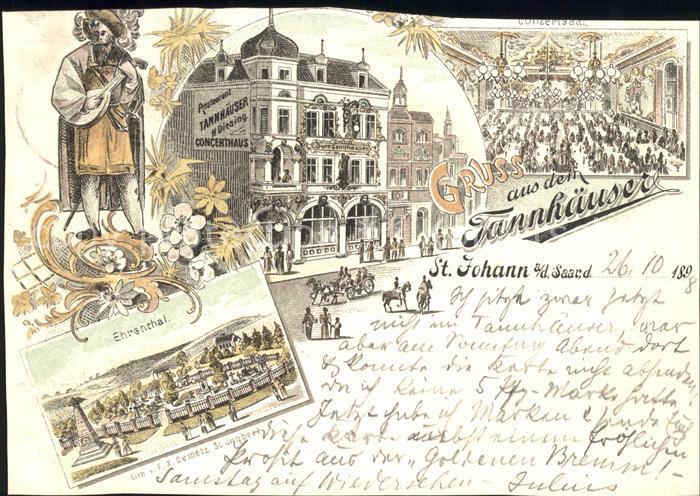 Concertsaal.
Restaurant
TANNHÄUSER
H Diesing.
CONCERTHAUS
GRUSS
aus dem
Tannhäuser
St. Johann a/d. Saar, d. 26. 10 1898
Ich sitze zwar jetzt
nicht im Tannhäuser, war
aber am Sonntag Abend dort
& konnte die Karte nicht absenden
da ich keine 5 Pfg-Marke hatte.
Jetzt habe ich Marken & sende
diese Karte nebst einem fröhlichen
Prosit aus der "Goldenen Bremm"!-
Samstag auf Wiedersehen- Julius
Ehrenthal.
Lith. v. F. X. Demetz, St. Ingbert